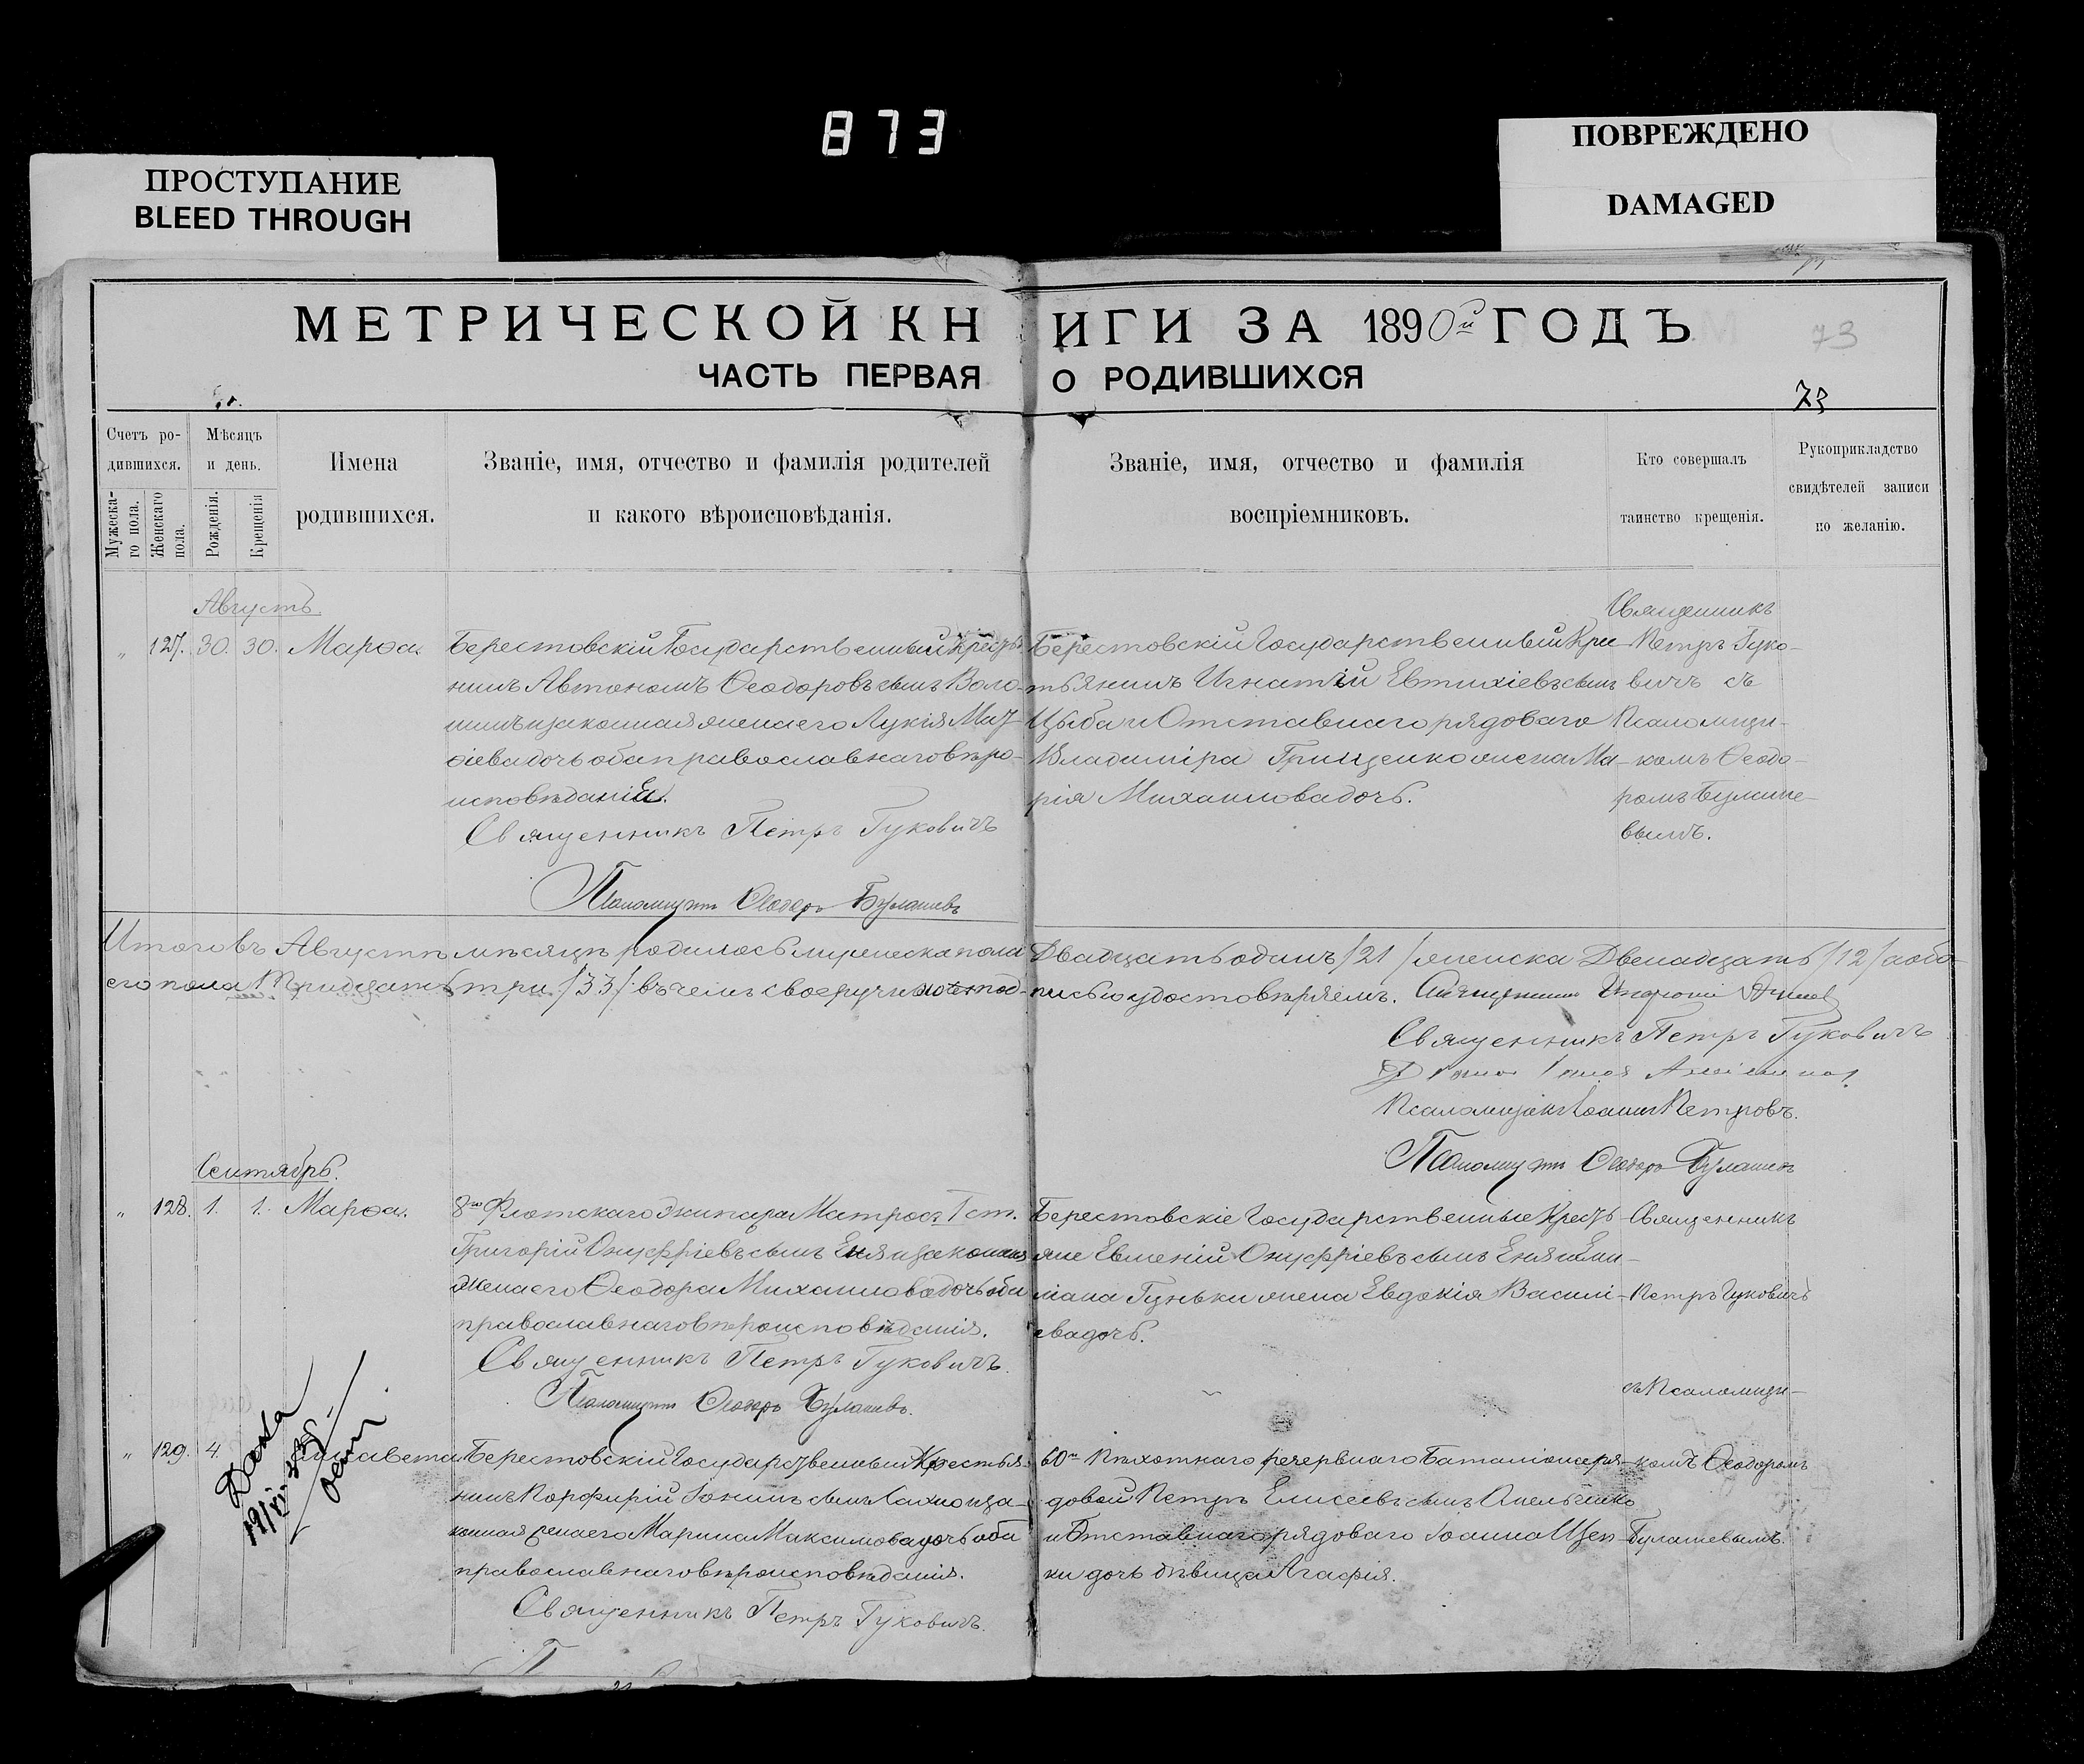 873
ПРОСТУПАНИЕ
BLEED THROUGH
ПОВРЕЖДЕНО
DAMAGED
МЕТРИЧЕСКОЙ КНИГИ ЗА 1890й ГОДЪ
73
ЧАСТЬ ПЕРВАЯ О РОДИВШИХСЯ
73
Счетъ ро-
дившихся.
Мужеска-
го пола.
Женскаго
пола.
Мѣсяцъ
и день.
Рожденія.
Крещенія
Имена
родившихся.
Званіе, имя, отчество и фамилія родителей
и какого вѣроисповѣданія.
Званіе, имя, отчество и фамилія
воспріемниковъ.
Кто совершалъ
таинство крещенія.
Рукоприкладство
свидѣтелей записи
по желанію.
Августъ.
„ 127. 30. 30. Марѳа.
Берестовскій Государственный Кресть
нинъ Автономъ Ѳеодоровъ сынъ Воло-
шинъ и законная жена его Лукія Мат-
ѳіева дочь оба православнаго вѣро-
исповѣданія.
Священникъ Петръ Гуковичъ
Псаломщикъ Ѳеодоръ Булашевъ
Берестовскій Государственный Кре
тьянинъ Игнатій Евтихіевъ сынъ
Цыба и Отставнаго рядоваго
Владиміра Грищенко жена Ма-
рія Михаилова дочь.
Священникъ
Петръ Гуко-
вичъ съ
Псаломщи-
комъ Ѳеодо-
ромъ Булаше-
вымъ.
Итого въ Августѣ мѣсяцѣ родилось мужеска пола Двадцать одинъ /21/ женска Двенадцать /12/ а обо-
его пола Тридцать три /33/ въ чемъ своеручною под- писью удостовѣряемъ. Священникъ
Священникъ Петръ Гуковичъ
Псаломщикъ Іоаннъ Петровъ.
Псаломщикъ Ѳеодоръ Булашевъ
Сентябрь.
„ 128. 1. 1. Марѳа.
8го Флотскаго Экипажа Матросъ 1 ст.
Григорій Онуфріевъ сынъ Еня и законная
жена его Ѳеодора Михаилова дочь оба
православнаго вѣроисповѣданія.
Священникъ Петръ Гуковичъ.
Псаломщикъ Ѳеодоръ Булашевъ.
Берестовскіе Государственные Кресть-
яне Евменій Онуфріевъ сынъ Еня и Еми-
ліана Гуньки жена Евдокія Василі-
ева дочь.
Священникъ
Петръ Гуковичъ
съ Псаломщи-
„ 129. 4. Елисавета
Берестовскій Государственный Крестья-
нинъ Порфирій Іонинъ сынъ и за-
конная жена его Марина Максимова дочь оба
православнаго вѣроисповѣданія.
Священникъ Петръ Гуковичъ.
60го Пѣхотнаго резервнаго Баталіона ря-
довой Петръ Елисеевъ сынъ Омельченко
и Отставнаго рядоваго Іоанна Щеп
ки дочь дѣвица Агафія.
комъ Ѳеодоромъ
Булашевымъ.